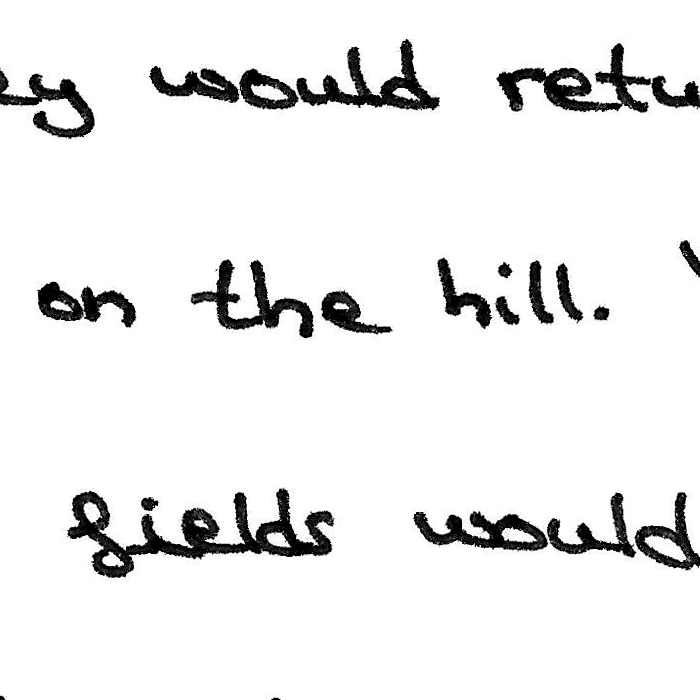 would
on the hill.
fields would